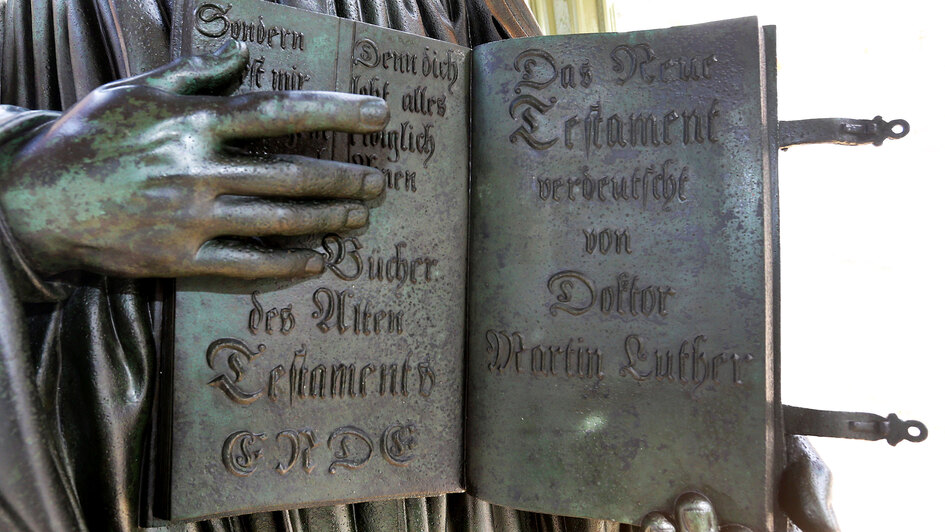 Sondern
mir
Denn dich
lobt alles
Bücher
des Alten
Teſtaments
ENDE
Das Neue
Teſtament
verdeutſcht
von
Doktor
Martin Luther